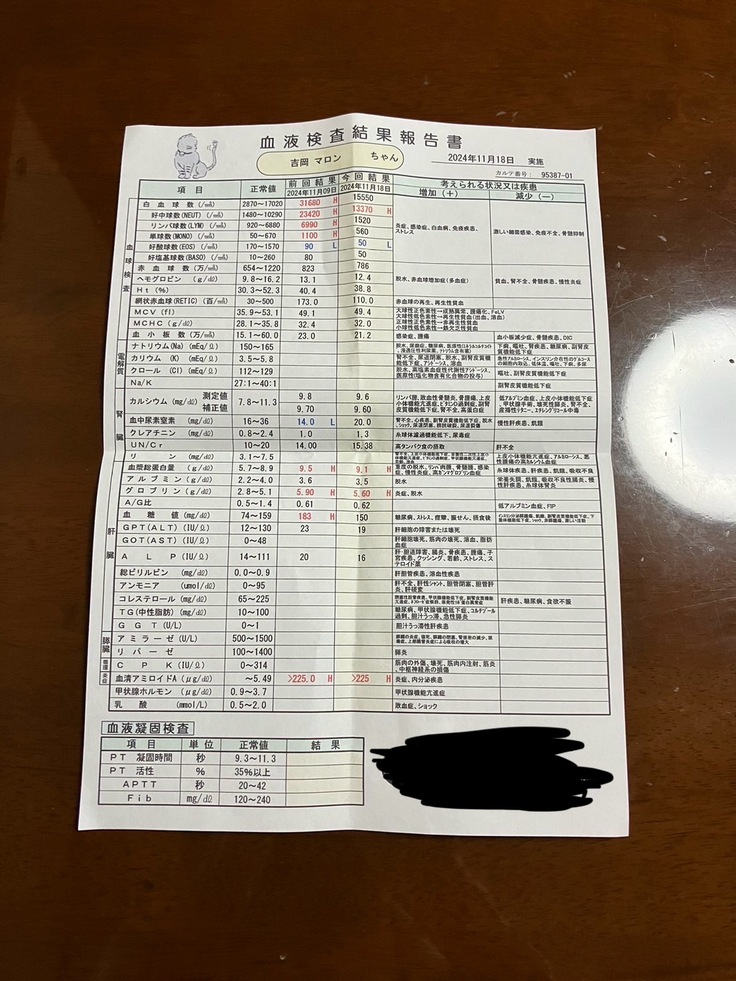 血液検査結果報告書
吉岡 マロン ちゃん
2024年11月18日 実施
カルテ番号: 95387-01
項目 正常値 前回結果 今回結果 考えられる状況又は疾患
2024年11月09日 2024年11月18日 増加(+) 減少(-)
血球検査
白血球数(/㎣) 2870~17020 31680 H 15550 炎症、感染症、白血病、免疫疾患、ストレス 激しい細菌感染、免疫不全、骨髄抑制
好中球数(NEUT) (/㎣) 1480~10290 23420 H 13370 H
リンパ球数(LYM) (/㎣) 920~6880 6990 H 1520
単球数(MONO) (/㎣) 50~670 1100 H 560
好酸球数(EOS) (/㎣) 170~1570 90 L 50 L
好塩基球数(BASO) (/㎣) 10~260 80 50
赤血球数(万/㎣) 654~1220 823 786 脱水、赤血球増加症(多血症) 貧血、腎不全、骨髄疾患、慢性炎症
ヘモグロビン (g/㎗) 9.8~16.2 13.1 12.4
Ht(%) 30.3~52.3 40.4 38.8
網状赤血球(RETIC) (百/㎣) 30~500 173.0 110.0 赤血球の再生、再生性貧血
MCV(fl) 35.9~53.1 49.1 49.4
MCHC(g/㎗) 28.1~35.8 32.4 32.0
血小板数(万/㎣) 15.1~60.0 23.0 21.2 感染症、腫瘍 血小板減少症、骨髄疾患、DIC
電解質
ナトリウム(Na) (mEq/ℓ) 150~165
カリウム (K) (mEq/ℓ) 3.5~5.8
クロール (Cl) (mEq/ℓ) 112~129 嘔吐、副腎皮質機能低下
Na/K 27:1~40:1 副腎皮質機能低下
腎臓
カルシウム(mg/㎗) 測定値 7.8~11.3 9.8 9.6
補正値 9.70 9.60
血中尿素窒素 (mg/㎗) 16~36 14.0 L 20.0 慢性肝疾患、飢餓
クレアチニン (mg/㎗) 0.8~2.4 1.0 1.3 糸球体濾過機能低下、尿毒症
UN/Cr 10~20 14.00 15.38 高タンパク食の摂取 肝不全
リン (mg/㎗) 3.1~7.5
肝臓
血漿総蛋白量 (g/㎗) 5.7~8.9 9.5 H 9.1 H 糸球体疾患、肝疾患、飢餓、吸収不良
アルブミン(g/㎗) 2.2~4.0 3.6 3.5 脱水
グロブリン(g/㎗) 2.8~5.1 5.90 H 5.60 H 炎症、脱水
A/G比 0.5~1.4 0.61 0.62 低アルブミン血症、FIP
血糖値(mg/㎗) 74~159 183 H 150 糖尿病、ストレス、痙攣、振せん、摂食後
GPT(ALT)(IU/ℓ) 12~130 23 19 肝細胞の障害または壊死
GOT(AST)(IU/ℓ) 0~48 肝細胞壊死、筋肉の壊死、溶血、脂肪血症
ALP(IU/ℓ) 14~111 20 16 肝・胆道障害、腸炎、骨疾患、腫瘍、子宮疾患、クッシング、若齢、ストレス、ステロイド薬
総ビリルビン (mg/㎗) 0.0~0.9 肝胆管疾患、溶血性疾患
アンモニア (umol/㎗) 0~95 肝不全、肝性シャント、胆管閉塞、胆管肝炎、肝硬変
コレステロール (mg/㎗) 65~225 肝疾患、糖尿病、食欲不振
TG(中性脂肪) (mg/㎗) 10~100 糖尿病、甲状腺機能低下症、コルチゾール過剰、胆汁うっ滞、急性膵炎
GGT(U/L) 0~1 胆汁うっ滞性肝疾患
膵臓
アミラーゼ(U/L) 500~1500
リパーゼ 100~1400 膵炎
CPK(IU/ℓ) 0~314 筋肉の外傷、壊死、筋肉内注射、筋炎、中枢神経系の損傷
血清アミロイドA(μg/㎗) ~5.49 >225.0 H >225 H 炎症、内分泌疾患
甲状腺ホルモン (μg/㎗) 0.9~3.7 甲状腺機能亢進症
乳酸 (mmol/L) 0.5~2.0 敗血症、ショック
血液凝固検査
項目 単位 正常値 結果
PT 凝固時間 秒 9.3~11.3
PT 活性 % 35%以上
APTT 秒 20~42
Fib mg/㎗ 120~240